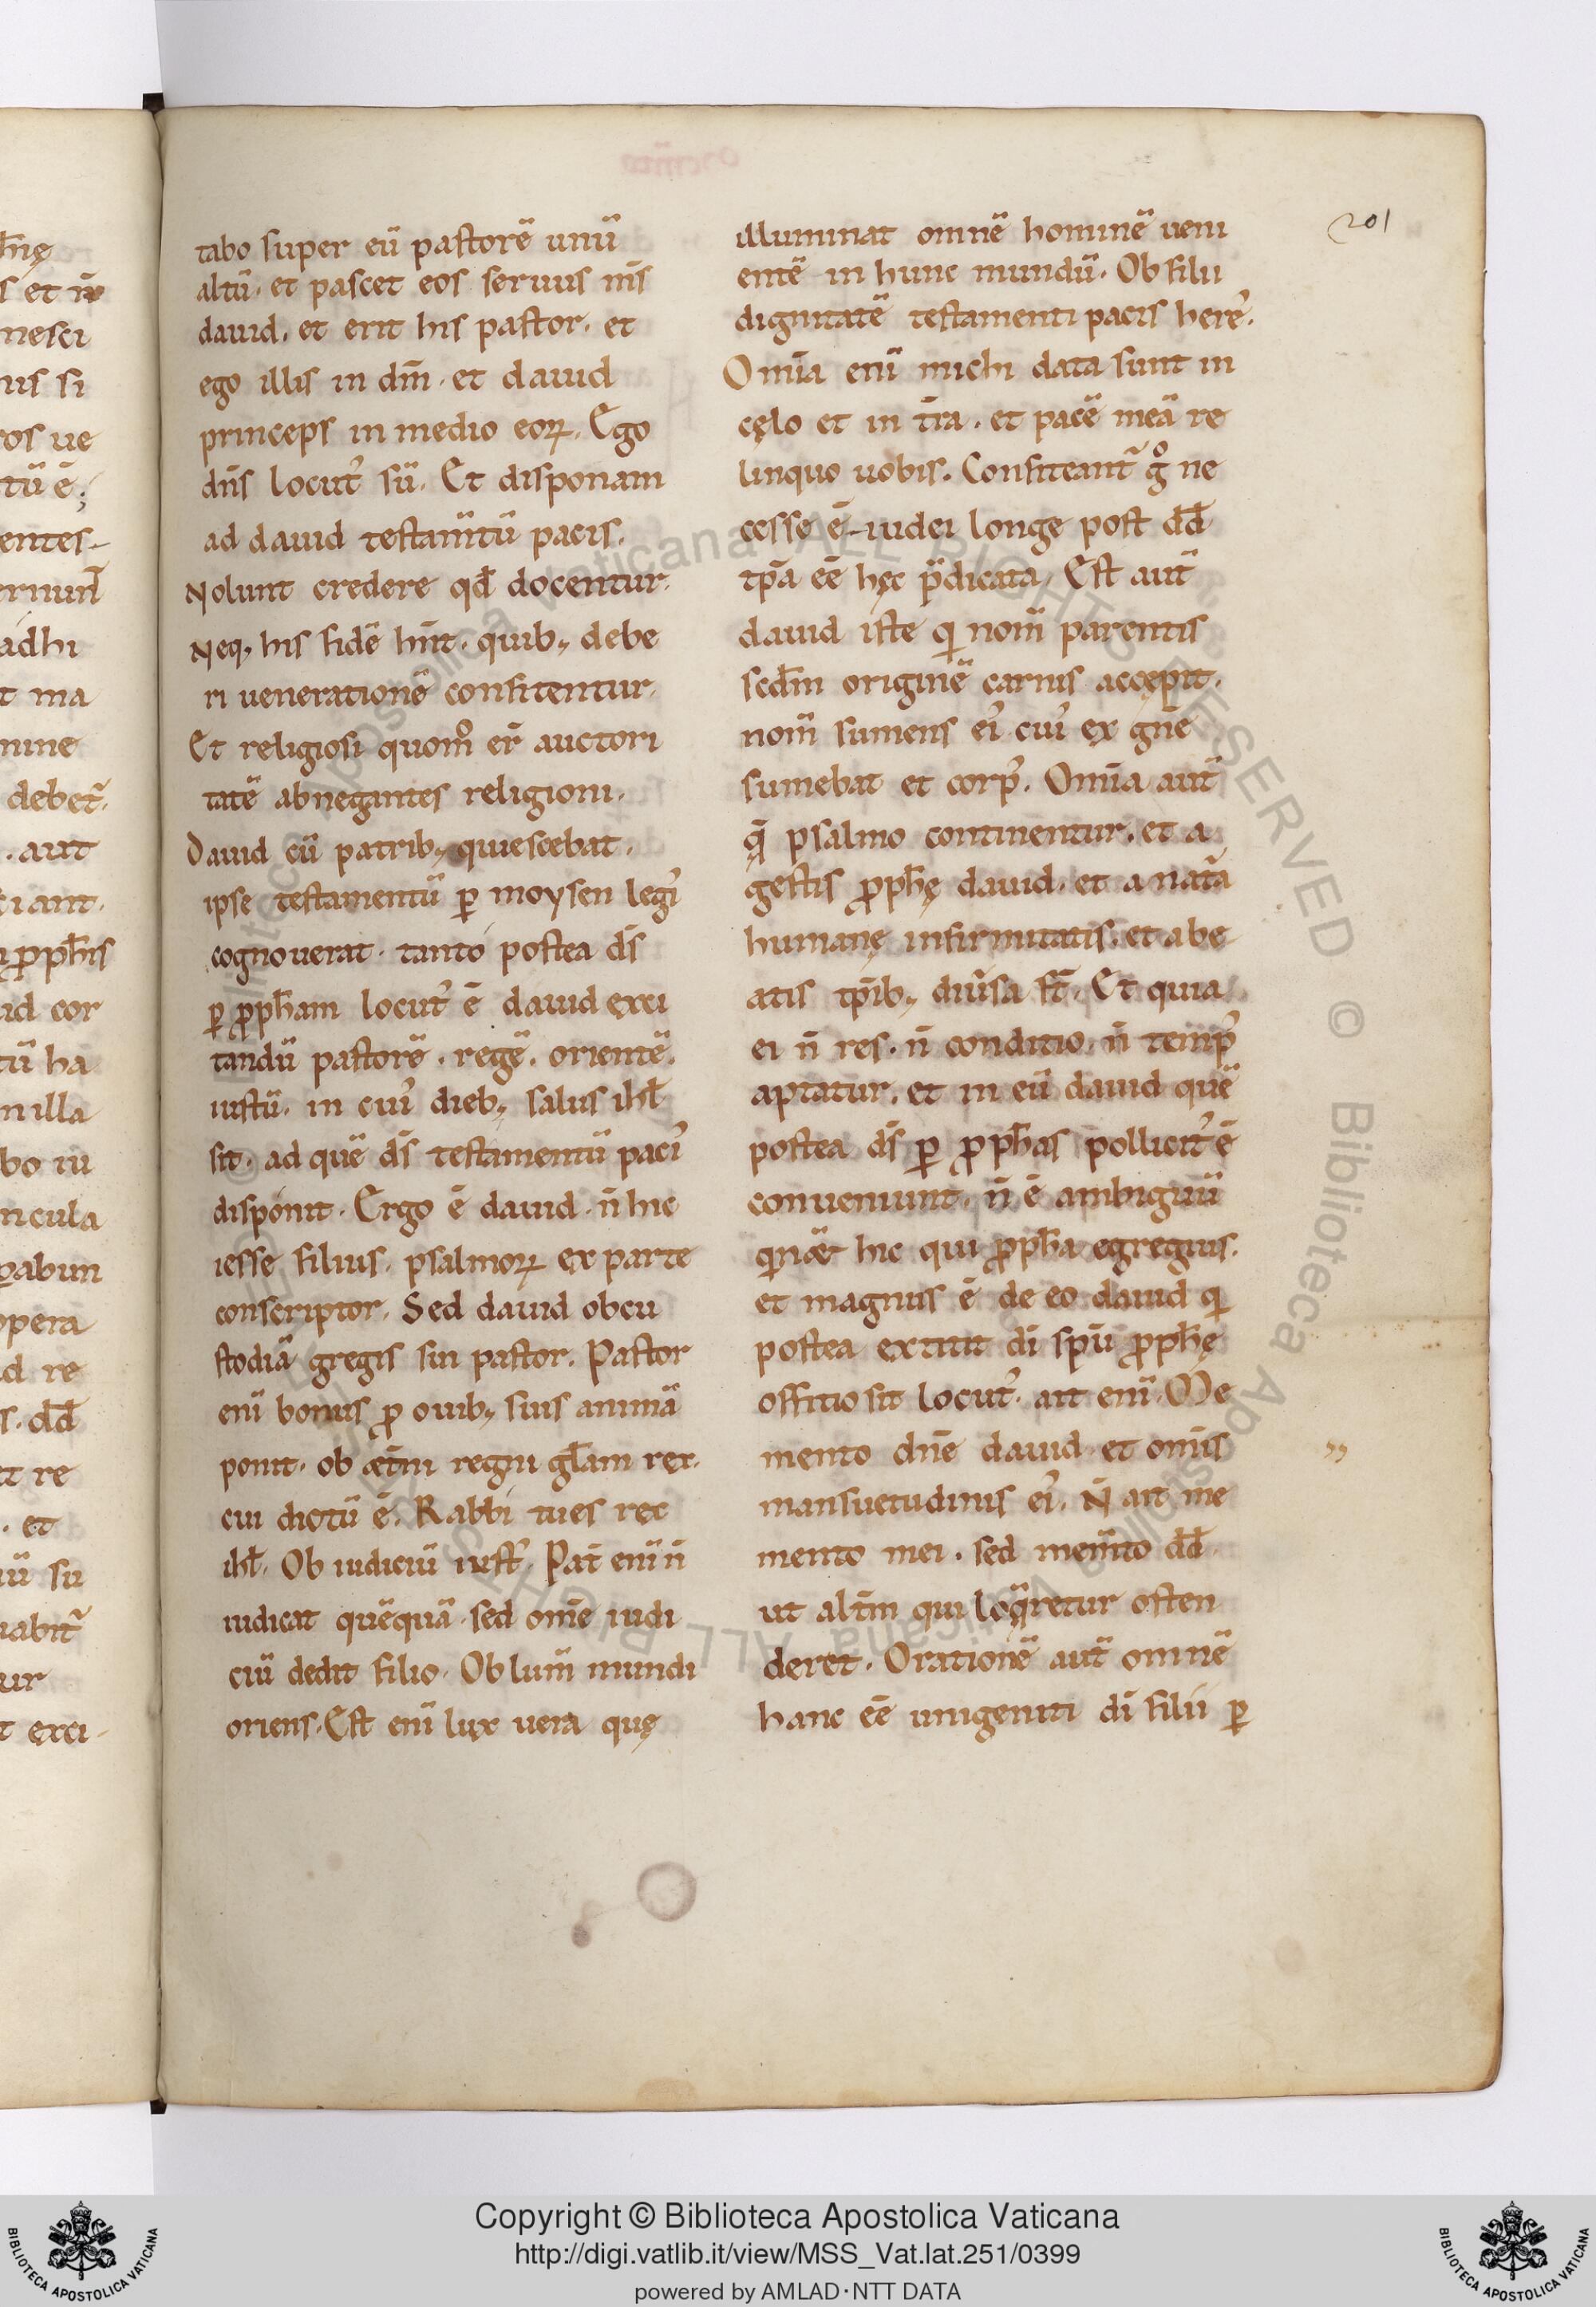 tabo super eū pastorē unū
altū. et pascet eos seruus m̄s
dauid. et erit his pastor. et
ego illis in dm̄. et dauid
princeps in medio eoꝝ. Ego
dn̄s locut᾿ sū. Et disponam
ad dauid testam̄tū pacis.
Nolunt credere qđ docentur.
Neq; his fidē hn̄t. quib; debe
ri uenerationē confitentur.
Et religiosi quom̊ er̄ auctori
tatē abnegantes religioni.
Dauid cū patrib; quiescebat.
ipse testamentū ꝑ moysen legi᾿
cognouerat. tanto postea ds̄
ꝑ ꝓph̄am locut᾿ ē dauid exci
tandū pastorē. regē. orientē.
iustū. in cui᾿ dieb; salus ihł
sit. ad quē ds̄ testamentū paci᾿
disponit. Ergo ē dauid. n̄ hic
iesse filius. psalmoꝝ ex parte
conscriptor. Sed dauid ob cu
stodiā gregis sui pastor. Pastor
enī bonus ꝓ ouib; suis animā
ponit. ob æt̄ni regni gl̄am rex.
cui dictū ē. Rabbi tu es rex
ihł. Ob iudiciū iust᾿. Pat̄ enī n̄
iudicat quēquā. sed om̄e iudi
ciū dedit filio. Ob lum̄ mundi
oriens. Est enī lux uera quę
illuminat omnē hominē ueni
entē in hunc mundū. Ob filii
dignitatē testamenti pacis here᾿.
Om̄ia enī michi data sunt in
cęlo et in t̄ra. et pacē meā re
linquo uobis. Confiteant᷑ g̊ ne
cesse ē iudei longe post dd̄
tp̄a eē hęc p̄dicata. Est aut̄
dauid iste qi nom̄ parentis
scd̄m originē carnis accepit.
nom̄ sumens ei᾿ cui᾿ ex gn̄e
sumebat et corp᾿. Om̄ia aut̄
q̄ psalmo continentur. et a
gestis ꝓph̄ę dauid. et a nat̄a
humanę infirmitatis. et a be
atis tp̄ib; diu̅sa st̄. Et quia
ei n̄ res. n̄ conditio. n̄ temp᾿
aptatur. et in eū dauid quē
postea ds̄ ꝑ ꝓph̄as pollicit᾿ ē
conueniunt. n̄ ē ambiguū
qi nǣ hic qui ꝓph̄a egregius.
et magnus ē de eo dauid qi
postea extitit dī spū ꝓph̄ę
offitio sit locut᾿. ait enī. Me
mento dn̄e dauid et om̄is
mansuetudinis ei᾿. N̄ ait me
mento mei. sed mem̄to dd̄
ut alt̄m qui loq̄retur osten
deret. Orationē aut̄ omnē
hanc eē unigeniti dī filii ꝑ
201
Copyright © Biblioteca Apostolica Vaticana
http://digi.vatlib.it/view/MSS_Vat.lat.251/0399
powered by AMLAD·NTT DATA